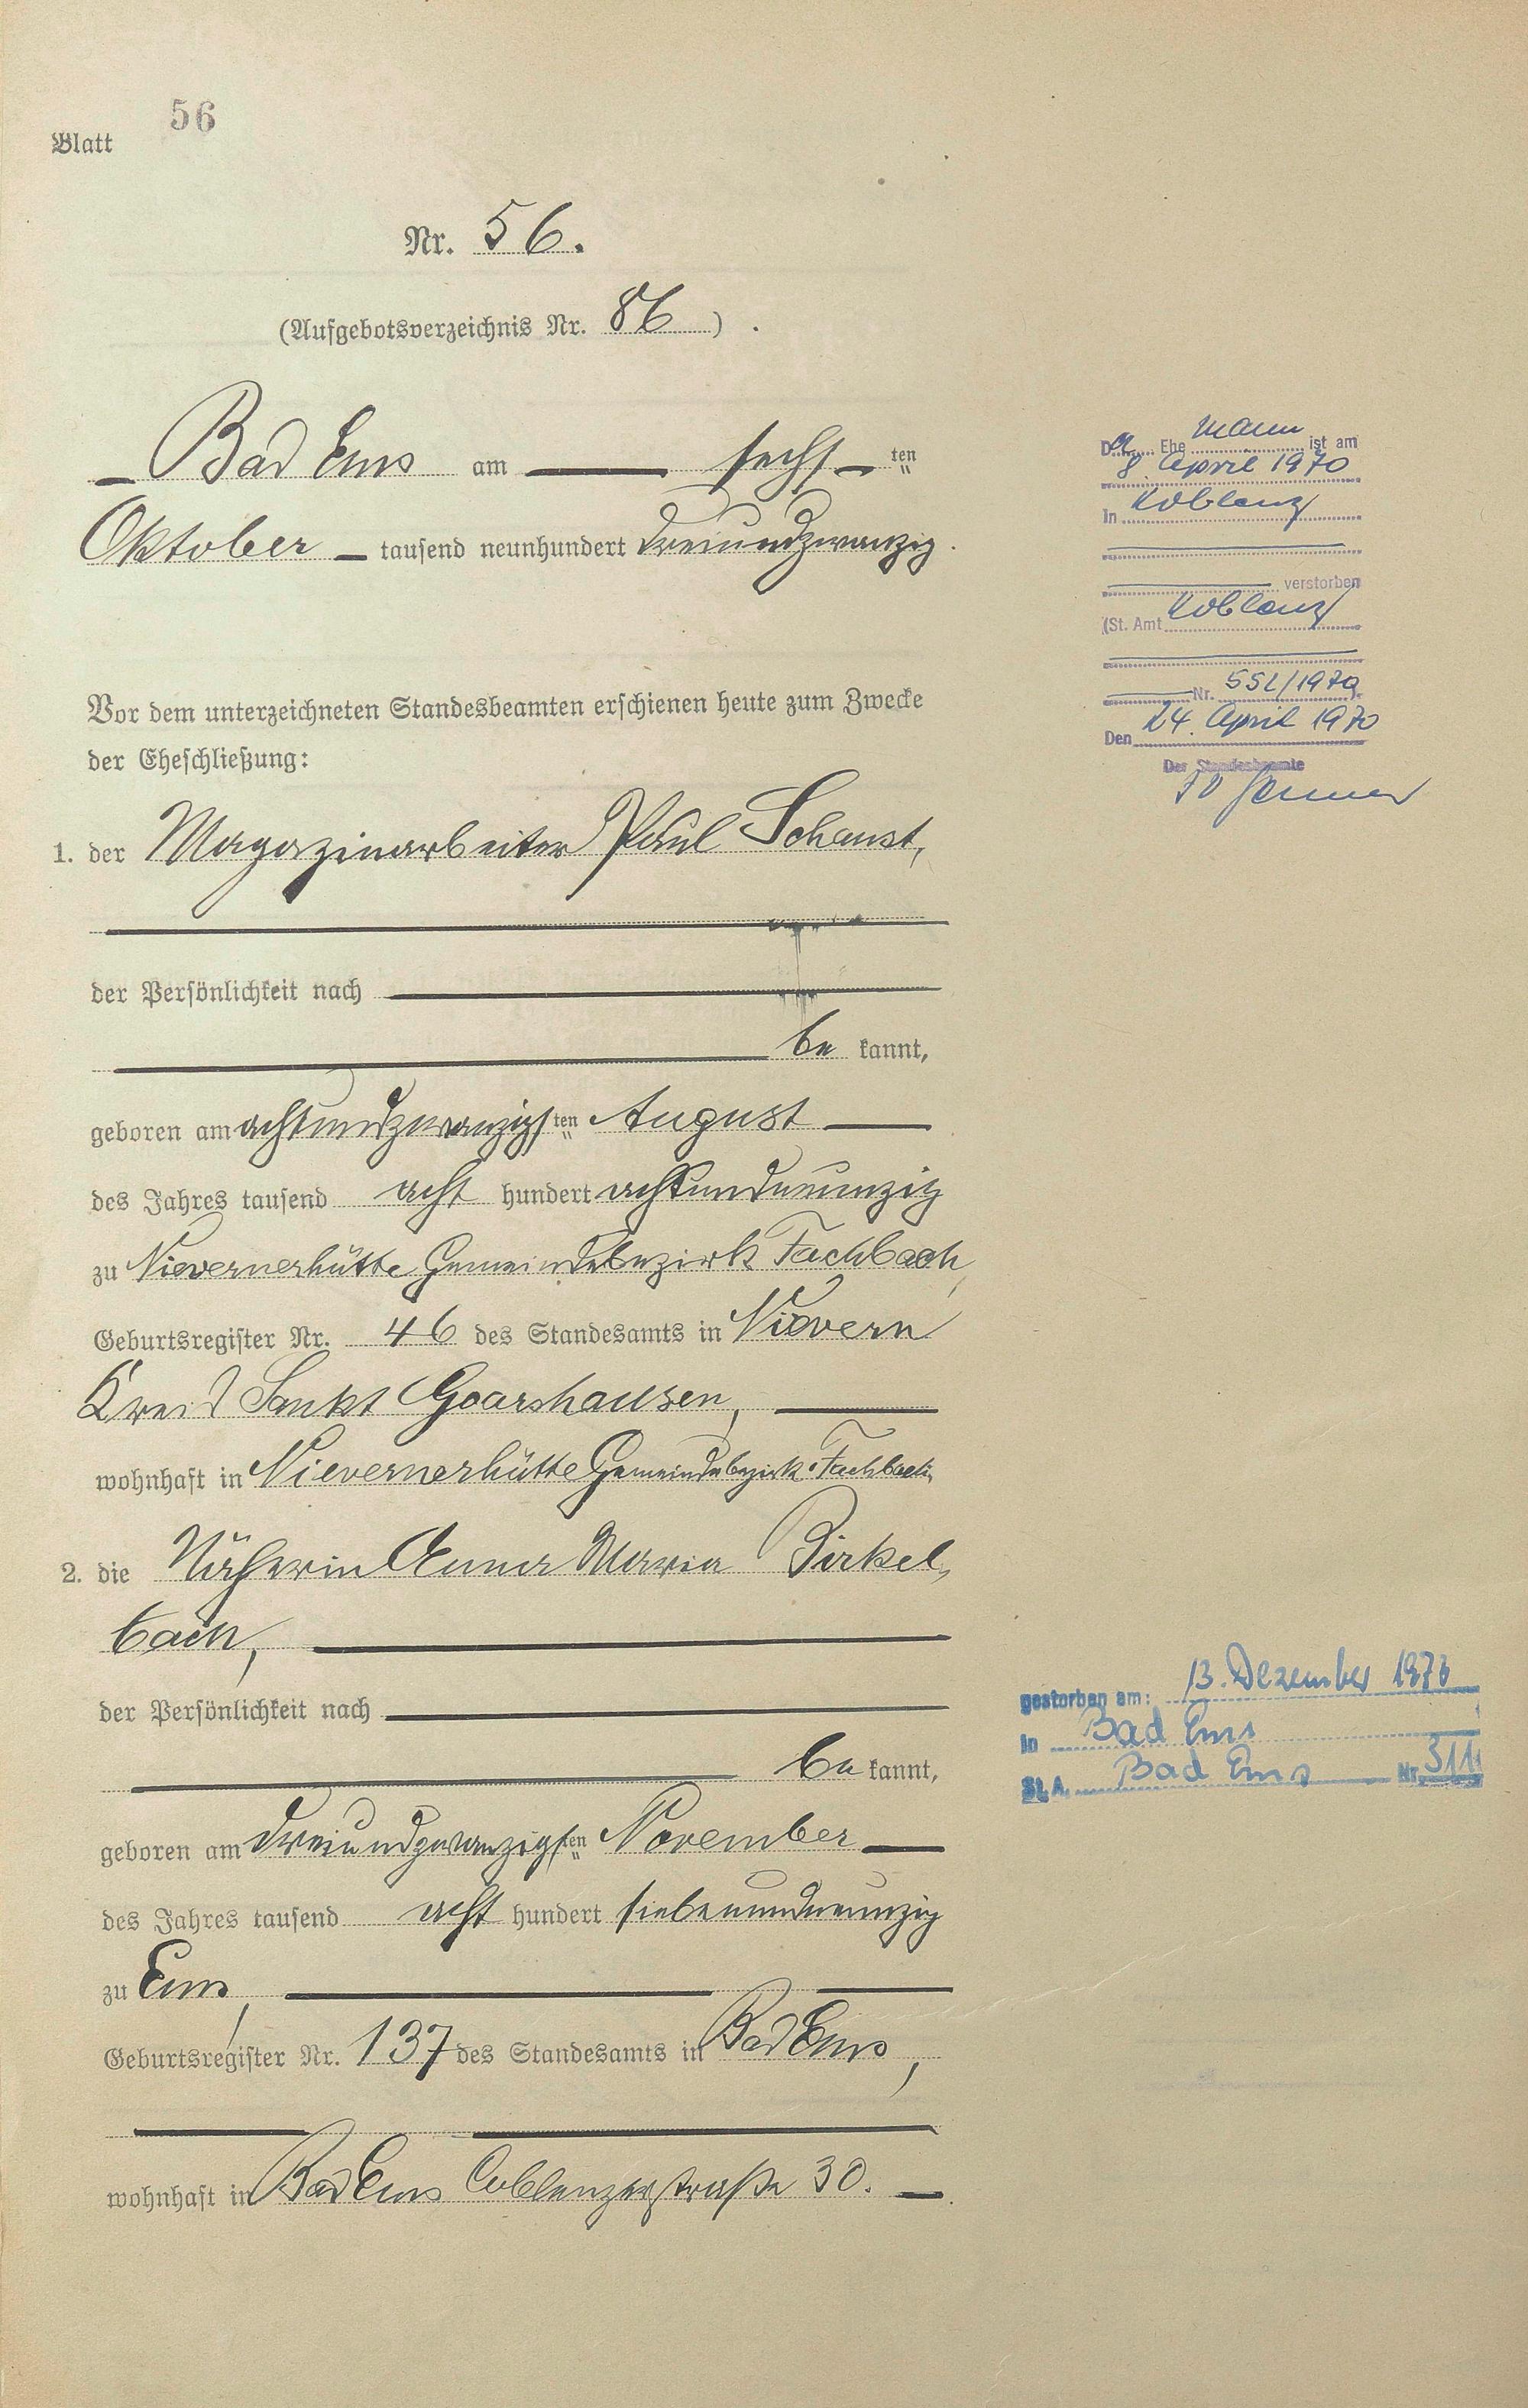 56
Blatt
Nr. 56.
(Aufgebotsverzeichnis Nr. 86) .
Bad Ems am sechsten
Oktober tausend neunhundert dreiundzwanzig.
Vor dem unterzeichneten Standesbeamten erschienen heute zum Zwecke
der Eheschließung:
1. der Magazinarbeiter Paul Schanst,
der Persönlichkeit nach
be kannt,
geboren am achtundzwanzigsten August
des Jahres tausend acht hundert achtundneunzig
zu Nievernerhütte Gemeindebezirk Fachbach,
Geburtsregister Nr. 46 des Standesamts in Nievern
Kreis Sankt Goarshausen,
wohnhaft in Nievernerhütte Gemeindebezirk Fachbach,
2. die Näherin Anna Maria Birkel-
bach,
der Persönlichkeit nach
be kannt,
geboren am dreiundzwanzigsten November
des Jahres tausend acht hundert siebenundneunzig
zu Ems,
Geburtsregister Nr. 137 des Standesamts in Bad Ems,
wohnhaft in Bad Ems Coblenzerstraße 30.
Der Ehemann ist am
8. April 1970
in Koblenz
verstorben
(St. Amt Koblenz
Nr. 552/1970
Den 24. April 1970
Der Standesbeamte
gestorben am: 13. Dezember 1973
in Bad Ems
St. A. Bad Ems Nr. 311